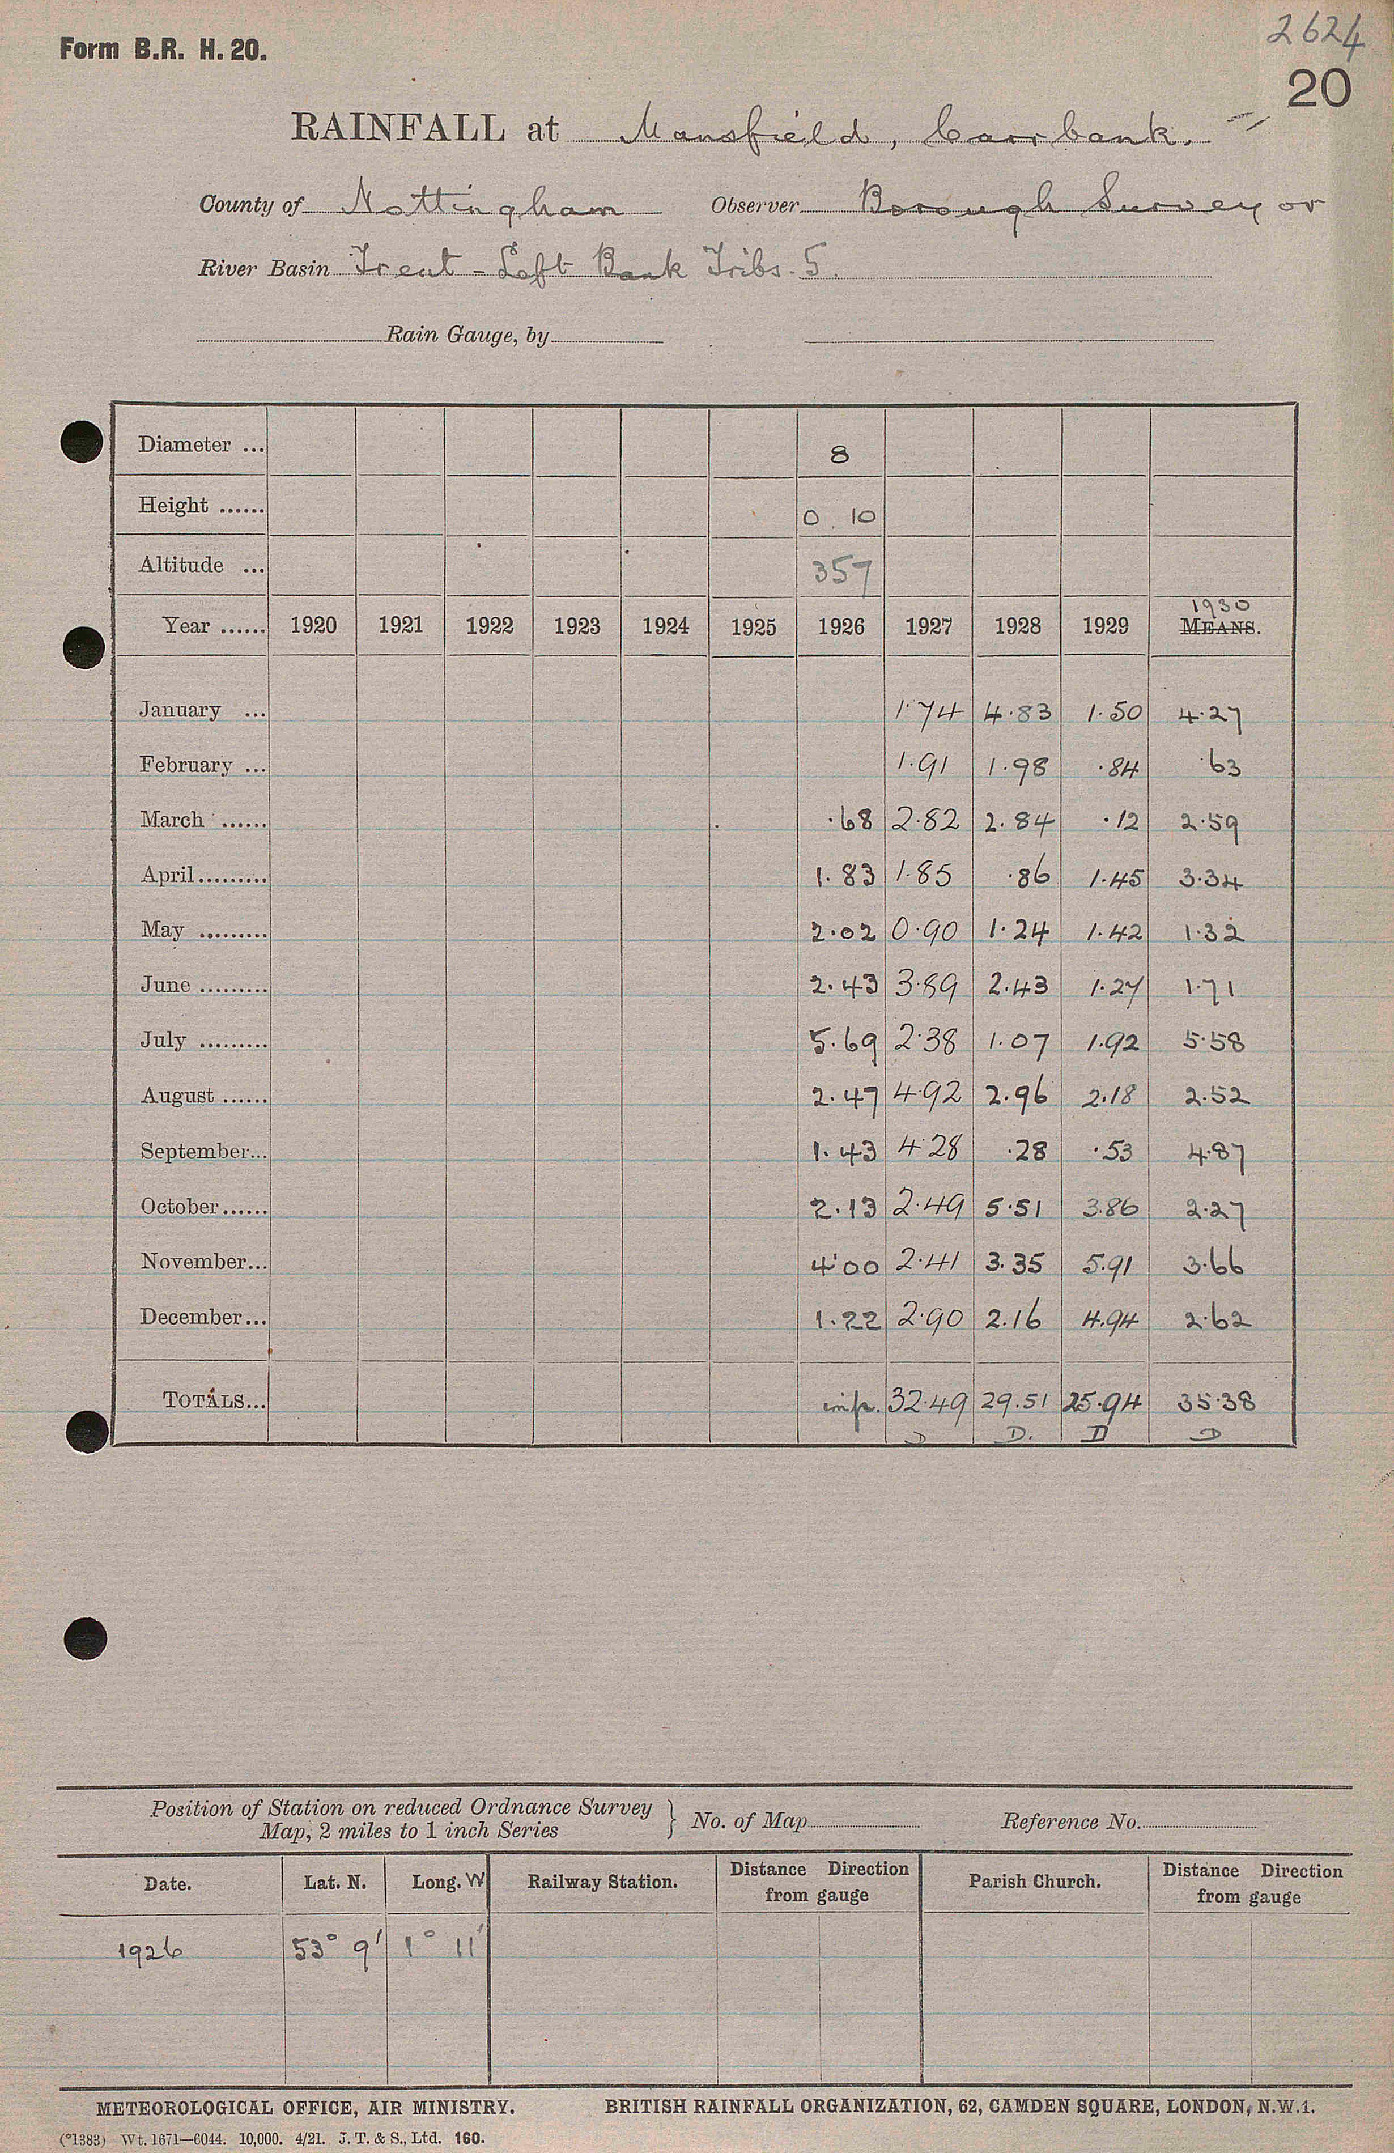 2624
Form B.R. H. 20.
20
RAINFALL at Mansfield, Carr bank.
County of Nottingham Observer Borough Surveyor
River Basin Trent - Left Bank Tribs. 5.
Rain Gauge, by
Diameter ... 8
Height ...... 0. 10
Altitude ... 357
1930
Year ...... 1920 1921 1922 1923 1924 1925 1926 1927 1928 1929 MEANS.
January ... 1.74 4.83 1.50 4.27
February ... 1.91 1.98 .84 .63
March ...... .68 2.82 2.84 .12 2.59
April......... 1.83 1.85 .86 1.45 3.34
May ......... 2.02 0.90 1.24 1.42 1.32
June ......... 2.43 3.89 2.43 1.27 1.71
July ......... 5.69 2.38 1.07 1.92 5.58
August ...... 2.47 4.92 2.96 2.18 2.52
September... 1.43 4.28 .28 .53 4.87
October...... 2.13 2.49 5.51 3.86 2.27
November... 4.00 2.41 3.35 5.91 3.66
December... 1.22 2.90 2.16 4.94 2.62
TOTALS... imp. 32.49 29.51 25.94 35.38
D D. D D
Position of Station on reduced Ordnance Survey
Map, 2 miles to 1 inch Series } No. of Map Reference No.
Date. Lat. N. Long. W Railway Station. Distance Direction from gauge Parish Church. Distance Direction from gauge
1926 53° 9' 1° 11'
METEOROLOGICAL OFFICE, AIR MINISTRY. BRITISH RAINFALL ORGANIZATION, 62, CAMDEN SQUARE, LONDON, N.W.1.
(°1383) Wt. 1671—6044. 10,000. 4/21. J. T. & S., Ltd. 160.